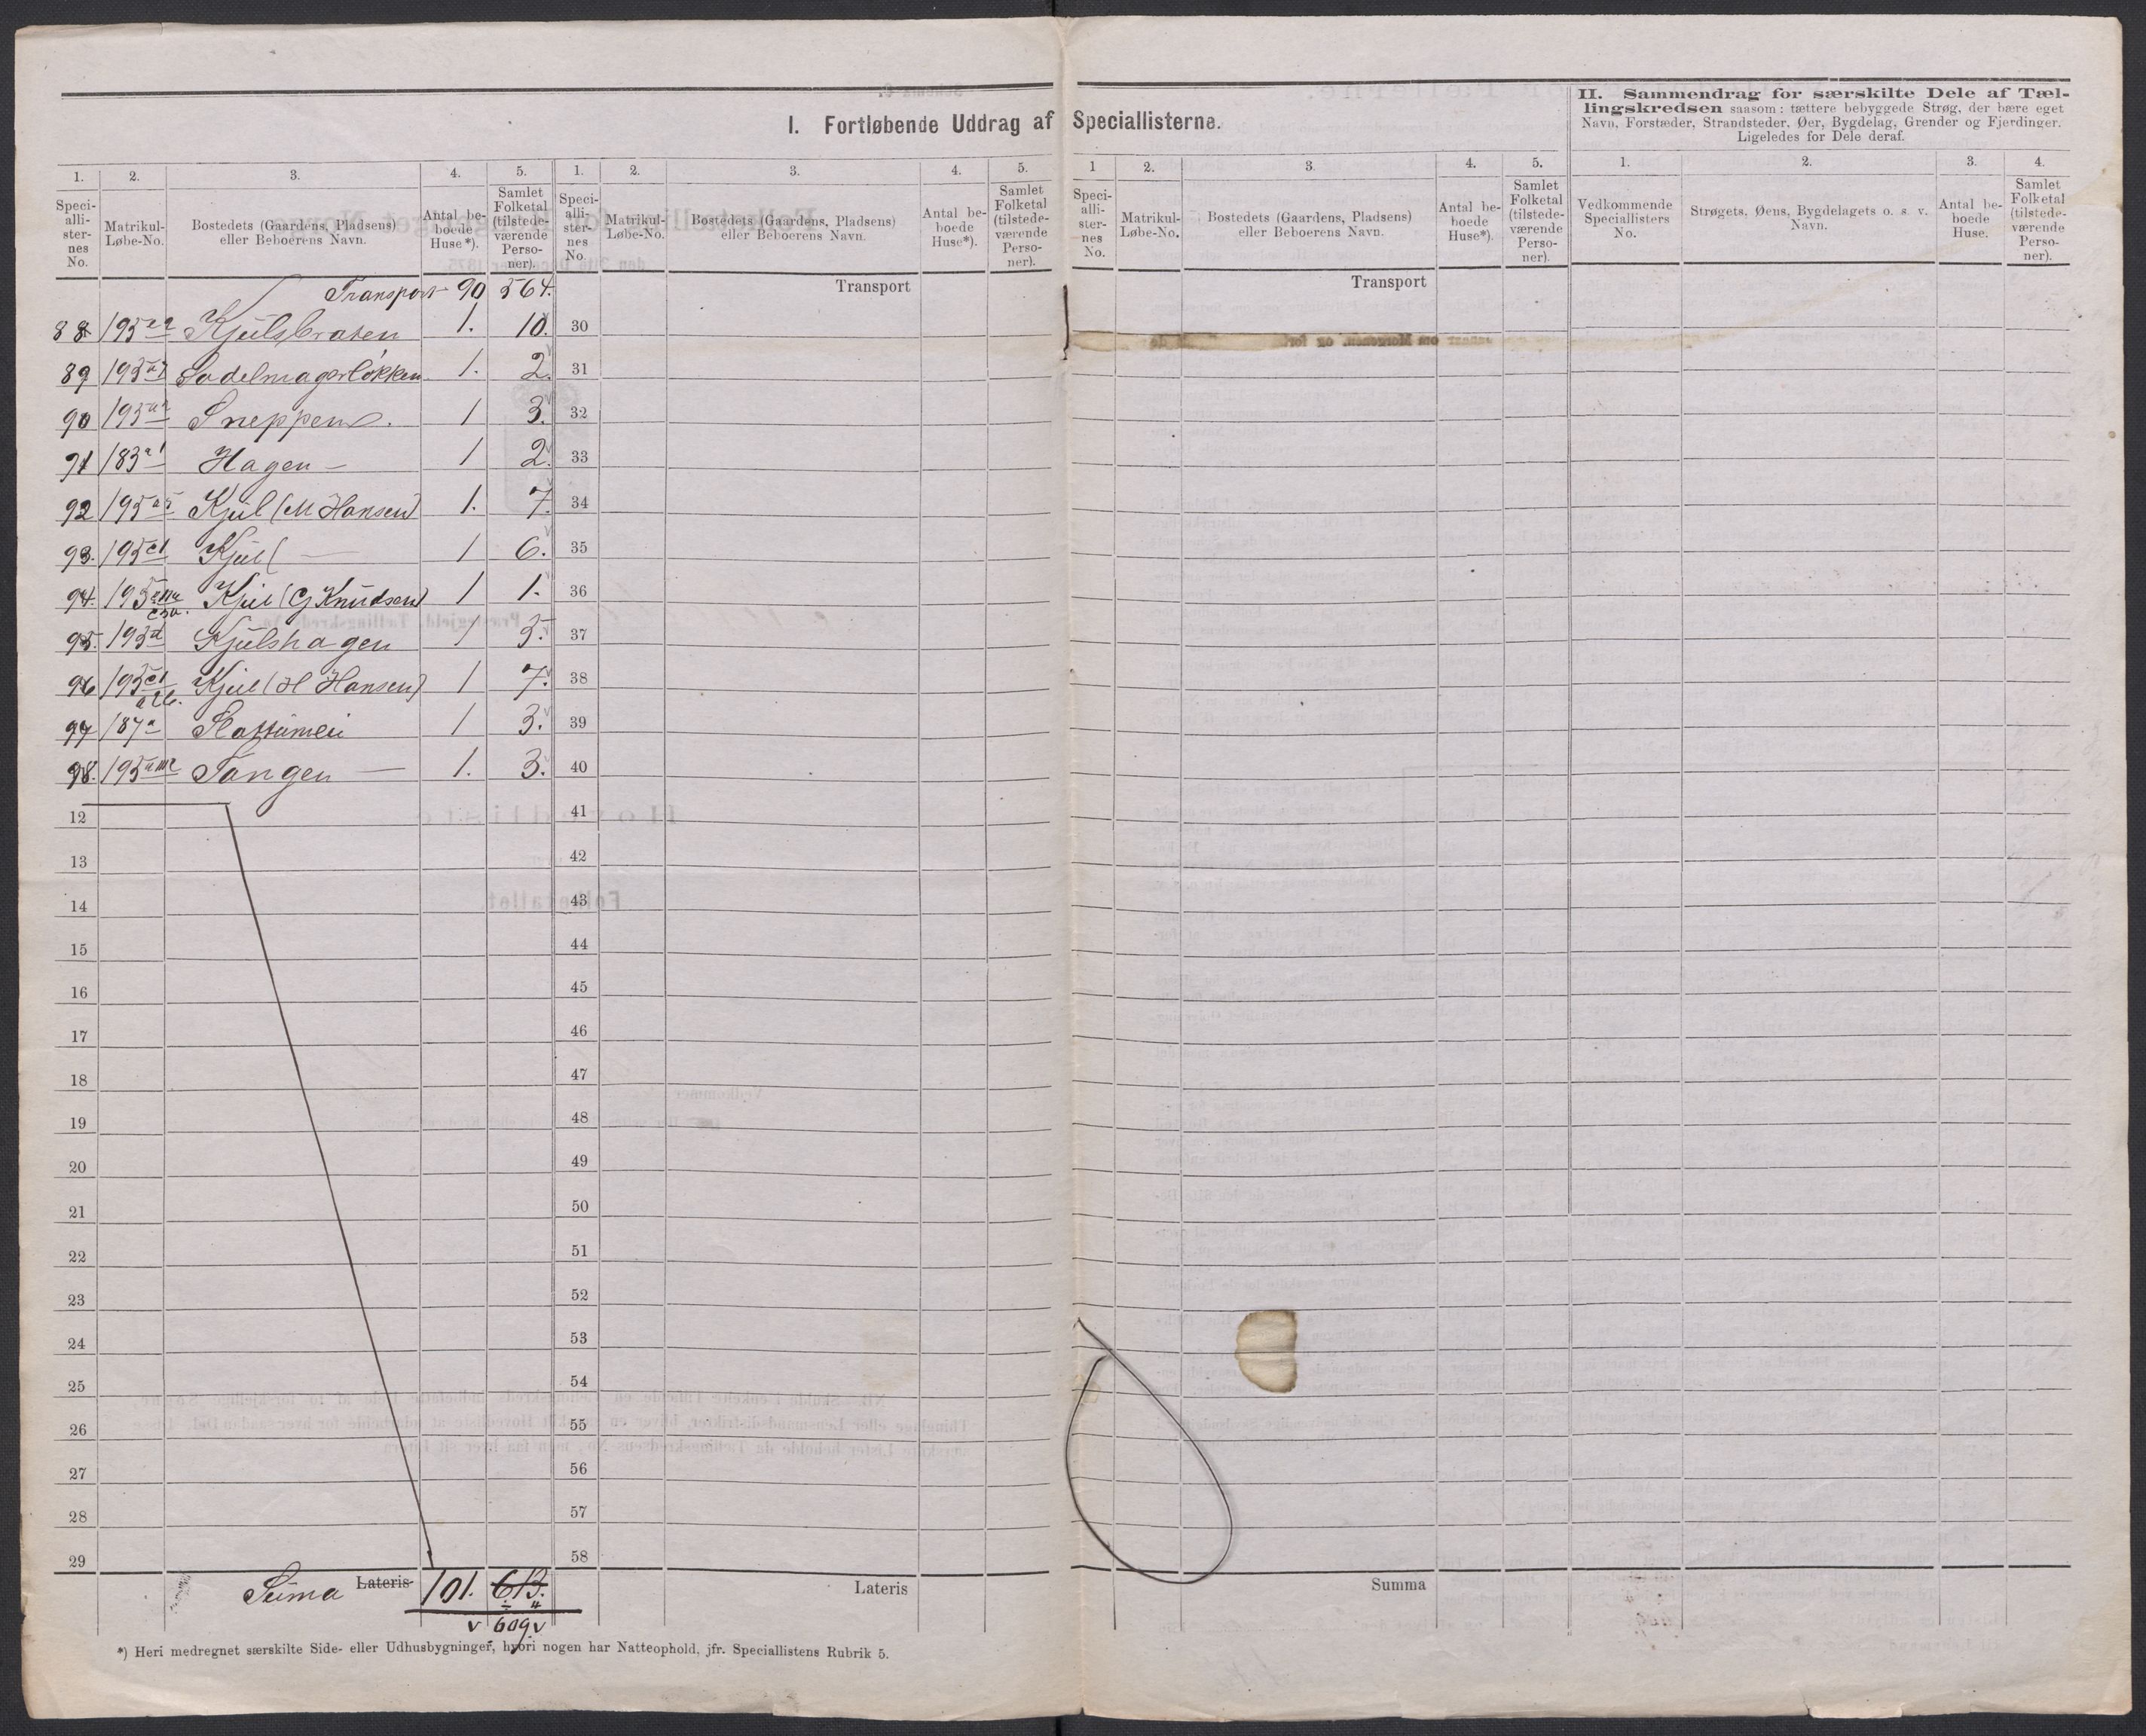 I. Fortløbende Uddrag af Speciallisterne.
II. Sammendrag for særskilte Dele af Tæl-
lingskredsen saasom: tættere bebyggede Strøg, der bære eget
Navn, Forstæder, Strandsteder, Øer, Bygdelag, Grender og Fjerdinger.
Ligeledes for Dele deraf.
1. 2. 3. 4. 5. 1. 2. 3. 4. 5. 1 2. 3. 4. 5. 1. 2. 3. 4.
Speci-alli-ster-nes No. Matrikul-Løbe-No. Bostedets (Gaardens, Pladsens) eller Beboerens Navn. Antal be-boede Huse*). Samlet Folketal (tilstede-værende Perso-ner).
Speci-alli-ster-nes No. Matrikul-Løbe-No. Bostedets (Gaardens, Pladsens) eller Beboerens Navn. Antal be-boede Huse*). Samlet Folketal (tilstede-værende Perso-ner).
Speci-alli-ster-nes No. Matrikul-Løbe-No. Bostedets (Gaardens, Pladsens) eller Beboerens Navn. Antal be-boede Huse*). Samlet Folketal (tilstede-værende Perso-ner).
Vedkommende Speciallisters No. Strøgets, Øens, Bygdelagets o. s. v. Navn. Antal be-boede Huse. Samlet Folketal (tilstede-værende Perso-ner).
Transport 90 564. Transport Transport
88 Kjulsbraten 1. 10. 30
89 Sadelmagerløkken 1. 2. 31
90 Sneppen. 1 3. 32
91 183 a1 Hagen — 1 2. 33
92 195 a5 Kjul (M Hansen) 1. 7. 34
93. 195 c1 Kjul ( — 1 6. 35
94. Kjul (G Knudsen) 1 1. 36
95. Kjulshagen 1 5. 37
96 195 c1 Kjul (H Hansen) 1 7. 38
97 187 a Slattumeie 1 3. 39
98. Tangen — 1. 3. 40
12 41
13 42
14 43
15 44
16 45
17 46
18 47
19 48
20 49
21 50
22 51
23 52
24 53
25 54
26 55
27 56
28 57
29 58
Suma Lateris 101. 613. Lateris Summa
609
*) Heri medregnet særskilte Side- eller Udhusbygninger, hvori nogen har Natteophold, jfr. Speciallistens Rubrik 5.